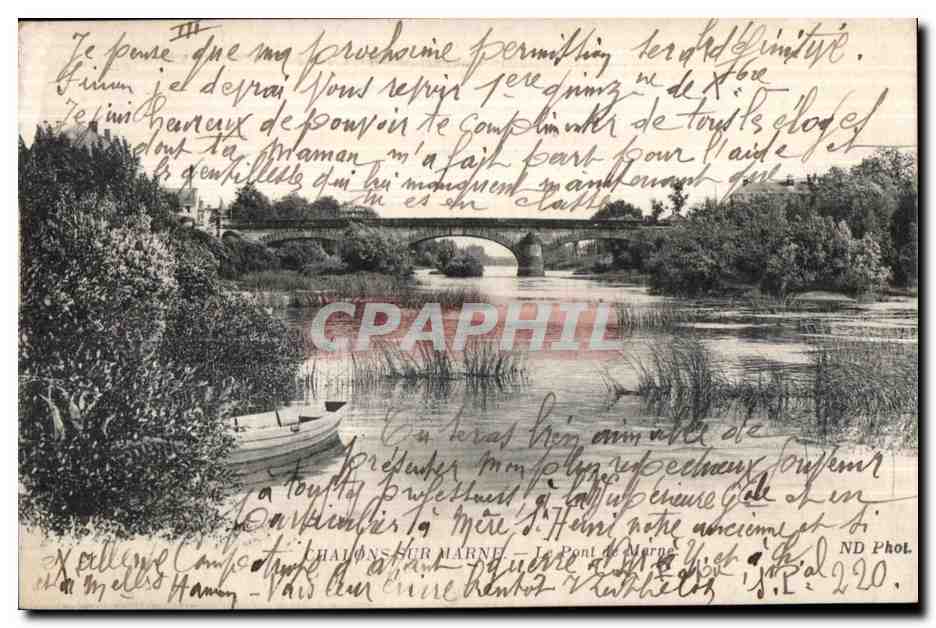 III
Je pense que ma prochaine permission sera définitive.
Sinon je devrai vous revoir 1ère quinz-ne de Xbre
Je suis heureux de pouvoir te complimenter de tous les éloges
dont ta Maman m'a fait part pour l'aide et
les gentillesses qui lui manquent maintenant que
tu es en classe
CPAPHIL
Tu seras bien aimable de
présenter mon plus respectueux souvenir
à tous tes professeurs à la Supérieure et en
particulier à Mère St Henri notre ancienne et si
compatriote d'avant-guerre et à
et à Melles Hamon - Vais leur écrire bientôt
CHALONS-SUR-MARNE. - Le Pont de Marne
ND Phot.
220